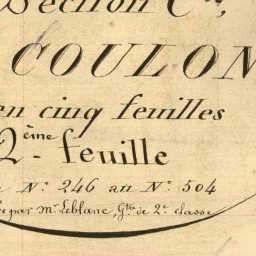 Section C
COULON
en cinq feuilles
2ème feuille
Nº 246 au Nº 504
par Mr Leblanc, Gtre de 2e classe